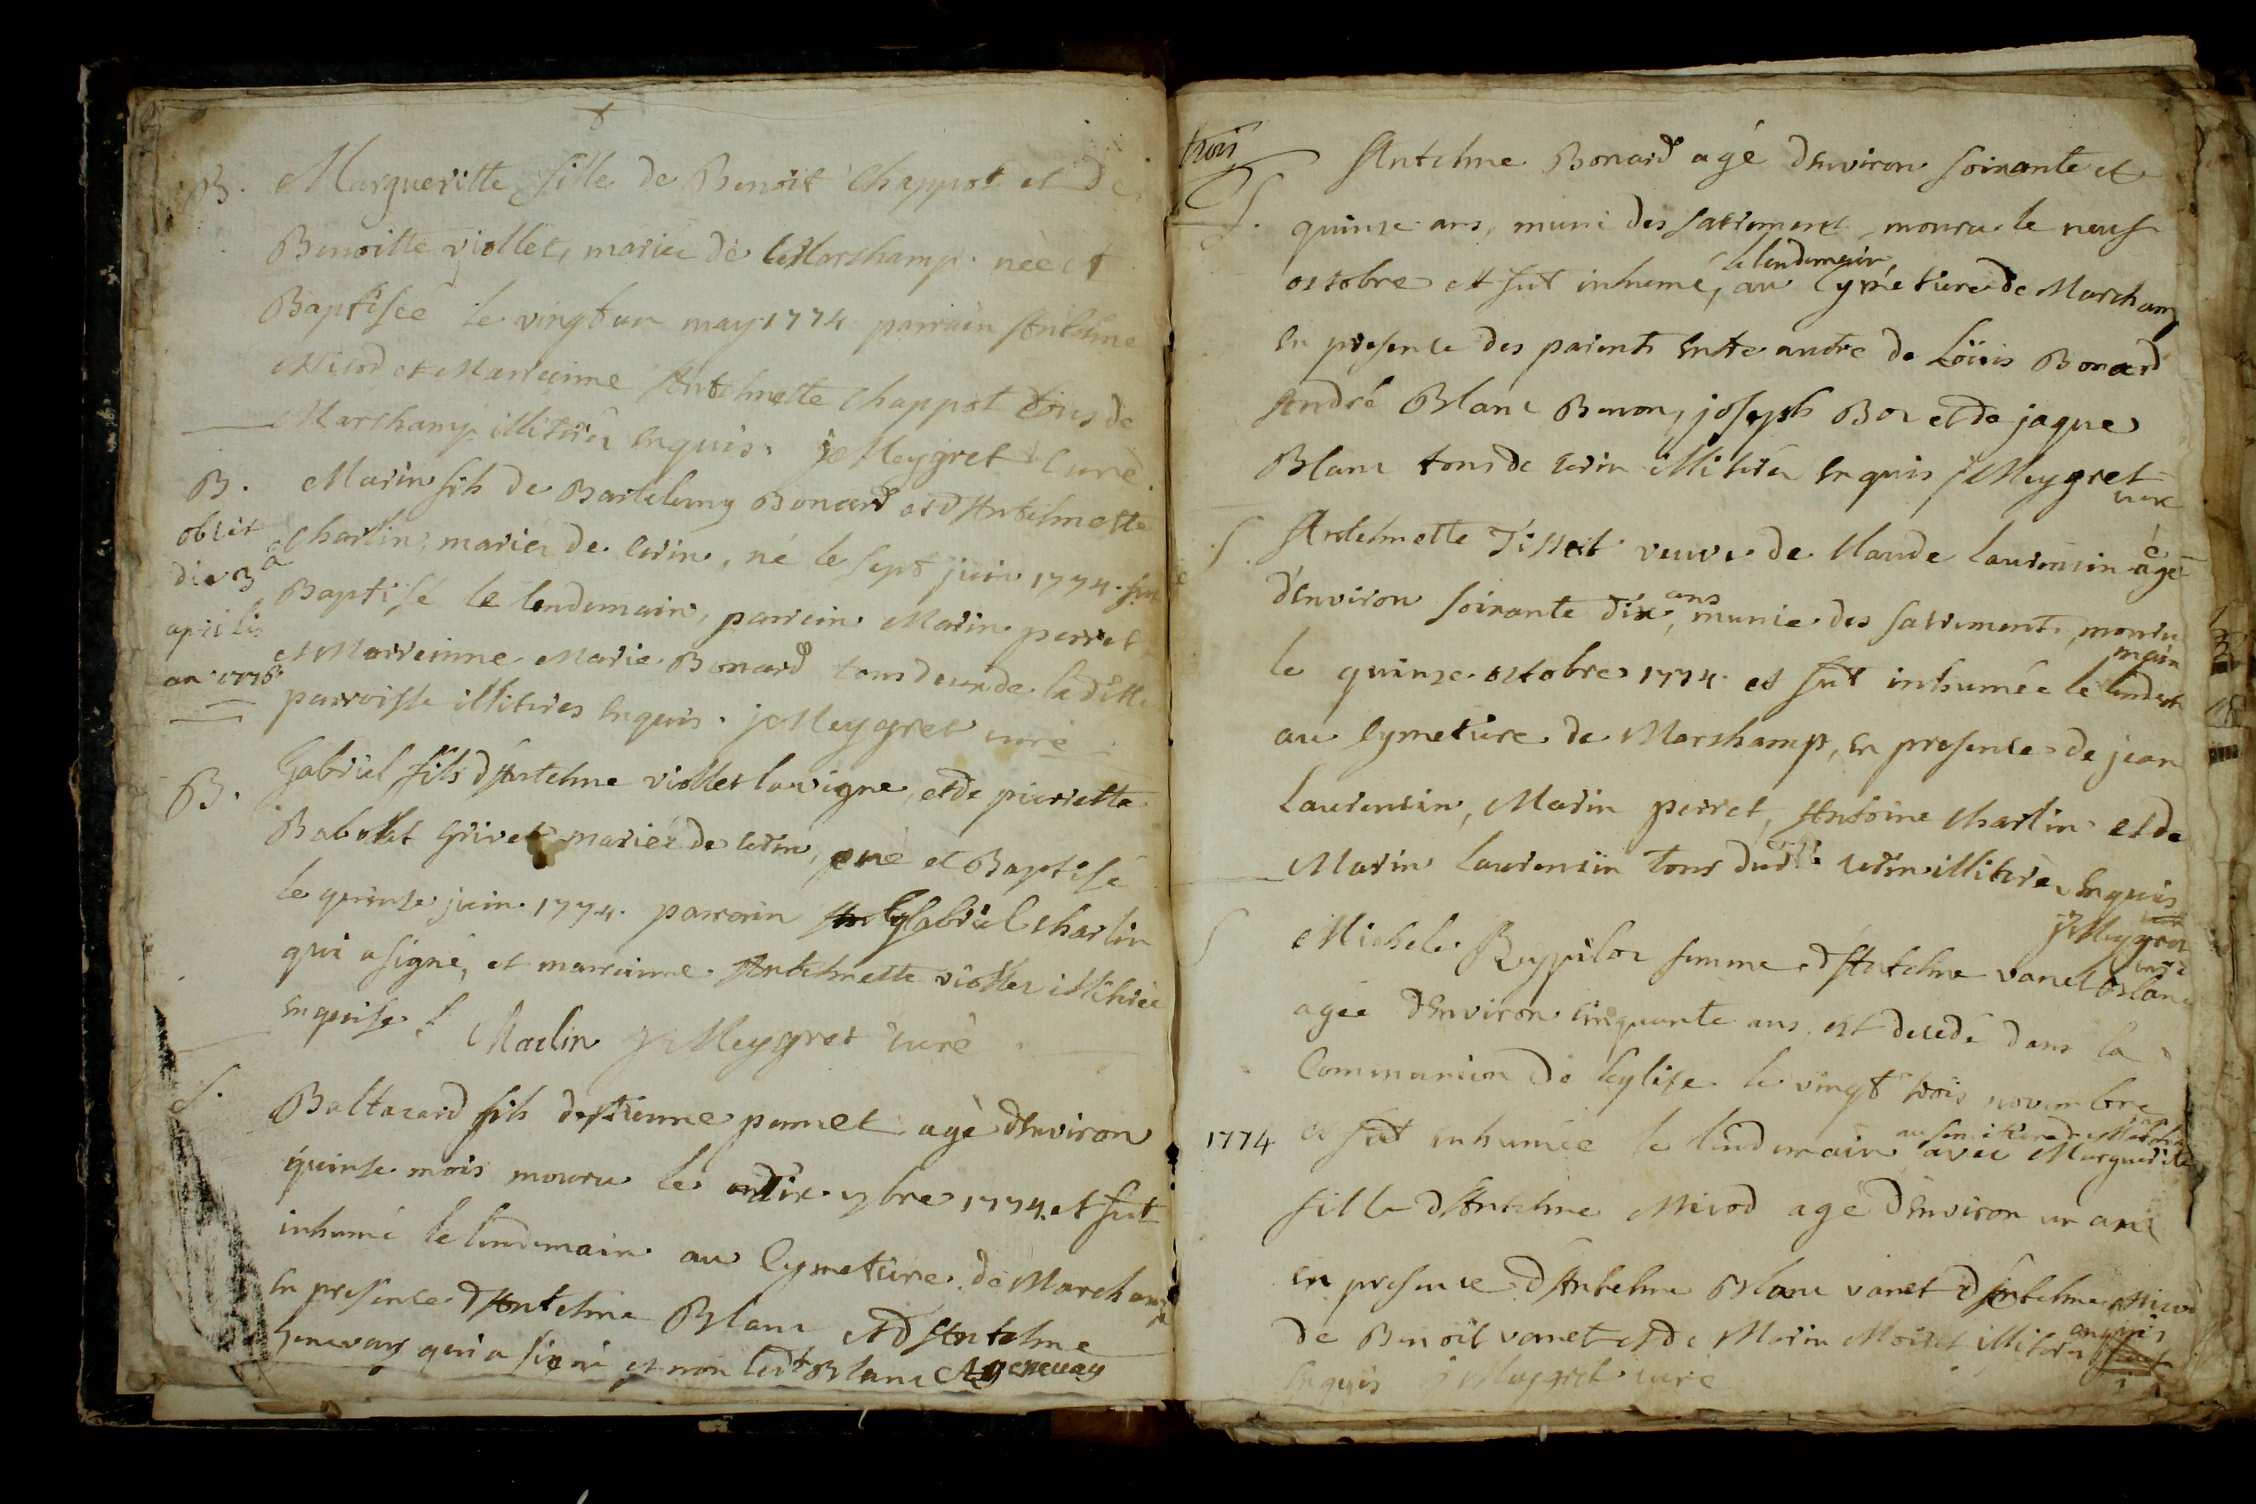 B. Margueritte fille de Benoit Chappot et de
Benoitte viollet, mariée de Marchamp. née et
Baptisée le vingt un may 1774 parrain Antelme
Nicod et Marrainne Antelmette Chappot tous de
Marchamp illitérés Enquis. je Meygret Curé
B. Marin fils de Bartelemy Bonard et d'Antelmette
obiit
die 3a
aprilis
an 1776
Charlin, mariés de cerin, né le sept juin 1774. fut
Baptisé le lendemain, parrein Marin perret
et Marreinne Marie Bonard tous deux de la ditte
parroisse illiteres Enquis. je Meygret curé
B. Gabriel fils d'Antelme viollet lavigne, et de pierrette
Babolat Grivet mariés de cerin, né et Baptisé
le quinse juin 1774. parrain Gabriel Charlin
qui a signé, et marreinne Antelmette viollet illitérée
Enquise.
Charlin je Meygret curé
S. Baltazard fils d'estienne pumet agé d'Environ
quinse mois mouru le dix 7bre 1774. et fut
inhumé le lendemain au Cymetiere de Marchamp
En presence d'Antelme Blanc et d'Antelme
Genevay qui a signé et non ledt Blanc AGenevay
trois
S. Antelme Bonard agé d'Environ soixante et
quinse ans, muni des sacrement mouru le neuf
le lendemain
octobre et fut inhumé, au Cymetiere de Marchamp
En presence des parents Entre autre de Loüis Bonard
André Blanc Benon, joseph Bor et de jaque
Blanc tous de cerin illitérés Enquis je Meygret
curé
S. Antelmette Tissot veuve de Claude laurensin agée
d'Environ soixante dix ans, munie des sacrements, mouru
le quinse octobre 1774 et fut inhumée le lendemain
au Cymetiere de Marchamp, En presence de jean
Laurensin, Marin perret, Antoine Charlin et de
Marin Laurensin tous dudt cerin illitérés Enquis
je Meygret
curé
S Michele Reypilor femme d'Antelme vanet Blanc
agée d'Environ cinquante ans est decedé dans la
Communion de leglise le vingt trois novembre
1774 et fut inhumée le lendemain avec Marguerite
fille d'Antelme Nicod agé d'Environ un ans
En presence d'Antelme Blanc vanet d'Antelme Nicod
de Benoit vanet et de Marin Moiret illitérés enquis
Enquis je Meygret curé